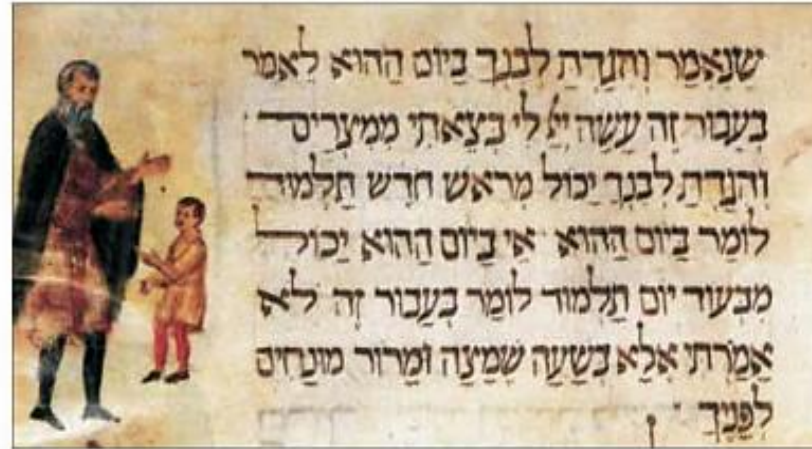 שֶׁנֶּאֱמַר וְהִגַּדְתָּ לְבִנְךָ בַּיּוֹם הַהוּא לֵאמֹר
בַּעֲבוּר זֶה עָשָׂה יְיָ לִי בְּצֵאתִי מִמִּצְרַיִם
וְהִגַּדְתָּ לְבִנְךָ יָכוֹל מֵראשׁ חֹדֶשׁ תַּלְמוּד
לוֹמַר בַּיּוֹם הַהוּא אִי בַּיּוֹם הַהוּא יָכוֹל
מִבְּעוֹד יוֹם תַּלְמוּד לוֹמַר בַּעֲבוּר זֶה לֹא
אָמַרְתִּי אֶלָּא בְּשָׁעָה שֶׁמַּצָּה וּמָרוֹר מוּנָחִים
לְפָנֶיךָ